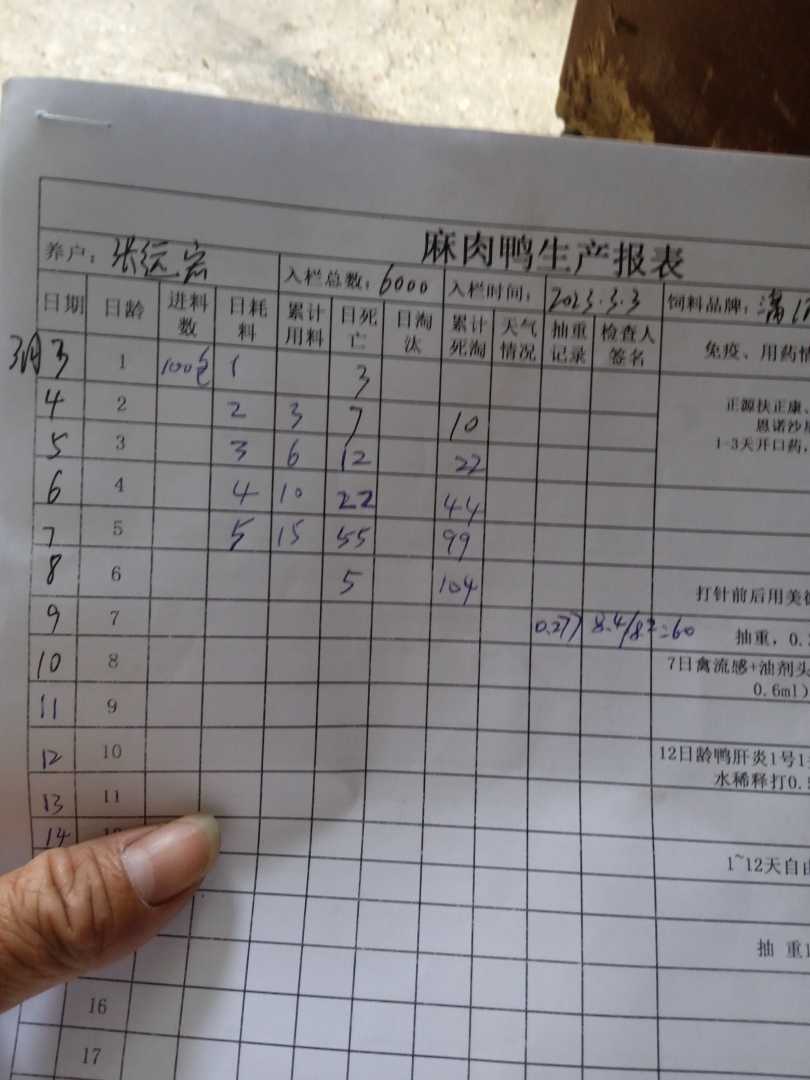 麻肉鸭生产报表
养户: 张远宏 入栏总数: 6000 入栏时间: 2023.3.3 饲料品牌:
日期 日龄 进料数 日耗料 累计用料 日死亡 日淘汰 累计死淘 天气情况 抽重记录 检查人签名 免疫、用药情
3月3 1 100包 1 3
4 2 2 3 7 10
5 3 3 6 12 22
6 4 4 10 22 44
7 5 5 15 55 99
8 6 5 104
9 7 0.277 8.4/82=60
10 8
11 9
12 10
13 11
14
16
17
正源扶正康、
恩诺沙
1-3天开口药,
打针前后用美
抽重, 0.
7日禽流感+油剂头
0.6ml)
12日龄鸭肝炎1号1
水稀释打0.
1~12天自由
抽 重